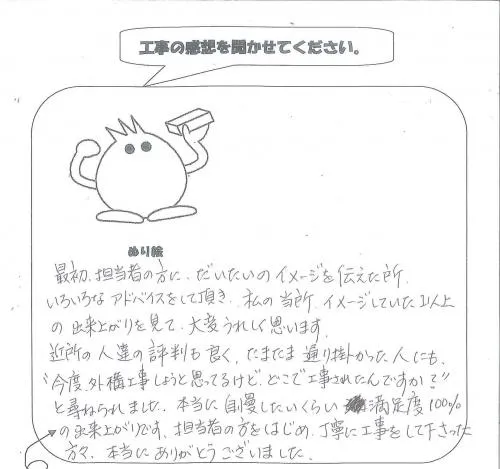 工事の感想を聞かせてください。
ぬり絵
最初、担当者の方に、だいたいのイメージを伝えた所、
いろいろな アドバイスをして頂き、私の当所、イメージしていた以上
の出来上がりを見て、大変うれしく思います。
近所の人達の評判も良く、たまたま通り掛かった人にも、
“今度、外構工事しようと思ってるけど、どこで工事されたんですか？”
と尋ねられました。本当に自慢したいくらい 満足度100%
の出来上がりです。担当者の方をはじめ、丁寧に工事をして下さった
方々、本当にありがとうございました。